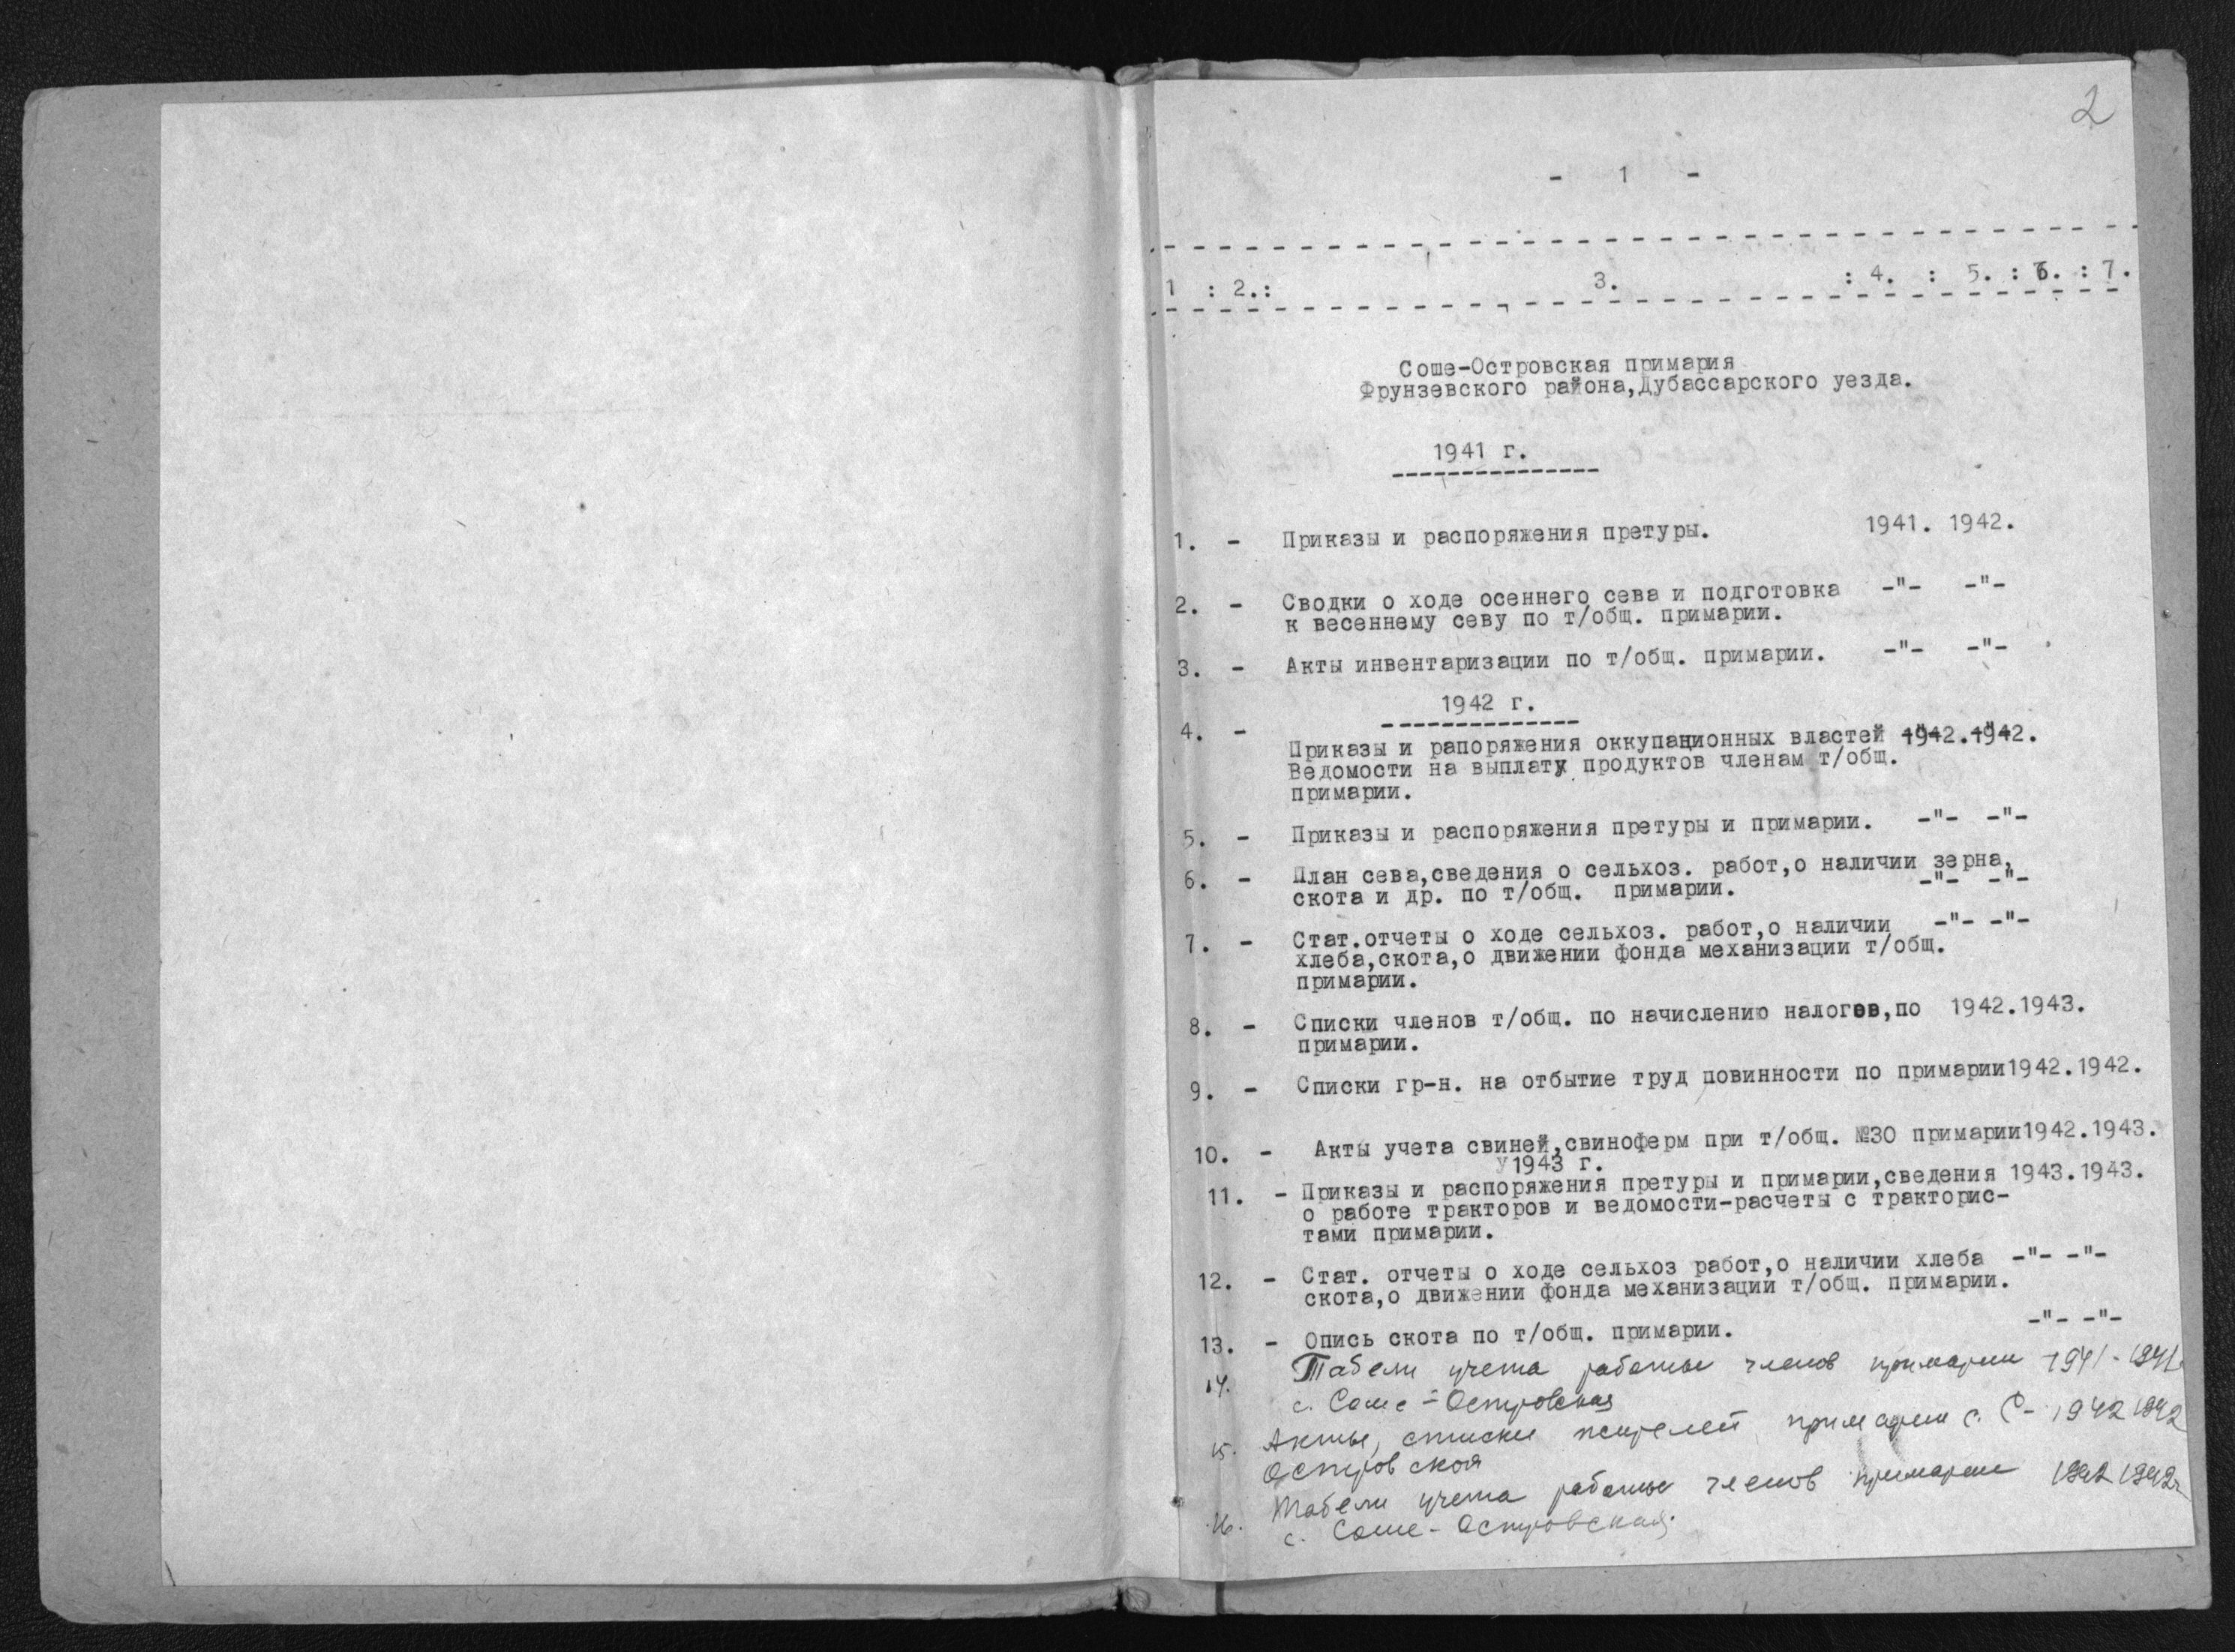 2
- 1 -
1 : 2.: 3. : 4. : 5. : 6. : 7.
Соше-Островская примария
Фрунзевского района,Дубассарского уезда.
1941 г.
1. - Приказы и распоряжения претуры. 1941. 1942.
2. - Сводки о ходе осеннего сева и подготовка -"- -"-
к весеннему севу по т/общ. примарии.
3. - Акты инвентаризации по т/общ. примарии. -"- -"-
1942 г.
4. -
Приказы и рапоряжения оккупационных властей 1942.1942.
Ведомости на выплату продуктов членам т/общ.
примарии.
5. - Приказы и распоряжения претуры и примарии. -"- -"-
6. - План сева,сведения о сельхоз. работ,о наличии зерна,
скота и др. по т/общ. примарии. -"- -"-
7. - Стат.отчеты о ходе сельхоз. работ,о наличии -"- -"-
хлеба,скота,о движении фонда механизации т/общ.
примарии.
8. - Списки членов т/общ. по начислению налогов,по 1942.1943.
примарии.
9. - Списки гр-н. на отбытие труд повинности по примарии1942.1942.
10. - Акты учета свиней,свиноферм при т/общ. №30 примарии1942.1943.
1943 г.
11. - Приказы и распоряжения претуры и примарии,сведения 1943.1943.
о работе тракторов и ведомости-расчеты с тракторис-
тами примарии.
12. - Стат. отчеты о ходе сельхоз работ,о наличии хлеба -"- -"-
скота,о движении фонда механизации т/общ. примарии.
13. - Опись скота по т/общ. примарии. -"- -"-
14. Табели учета работы членов примарии 1941-1941
с. Соше-Островская
15. Акты, списки примарии с. С- 1942 1942
Островской
16. Табели учета работы членов примарии 1942 1942
с. Соше-Островская.